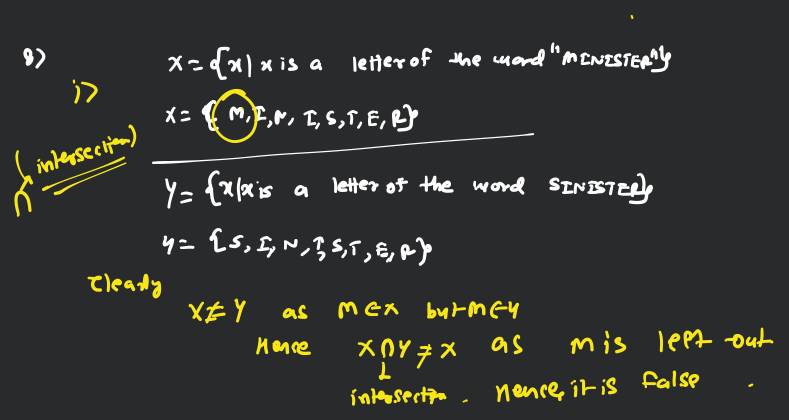 8)
i)
X = {x | x is a letter of the word "MINISTER"}
X = { M, I, N, I, S, T, E, R}
(intersection)
∩
Y = {x|x is a letter of the word SINISTER}
Y = {S, I, N, I, S, T, E, R}
Clearly
X ≠ Y as M ∈ X but M ∈ Y
Hence X ∩ Y ≠ X as M is left out
intersection. Hence, it is false.